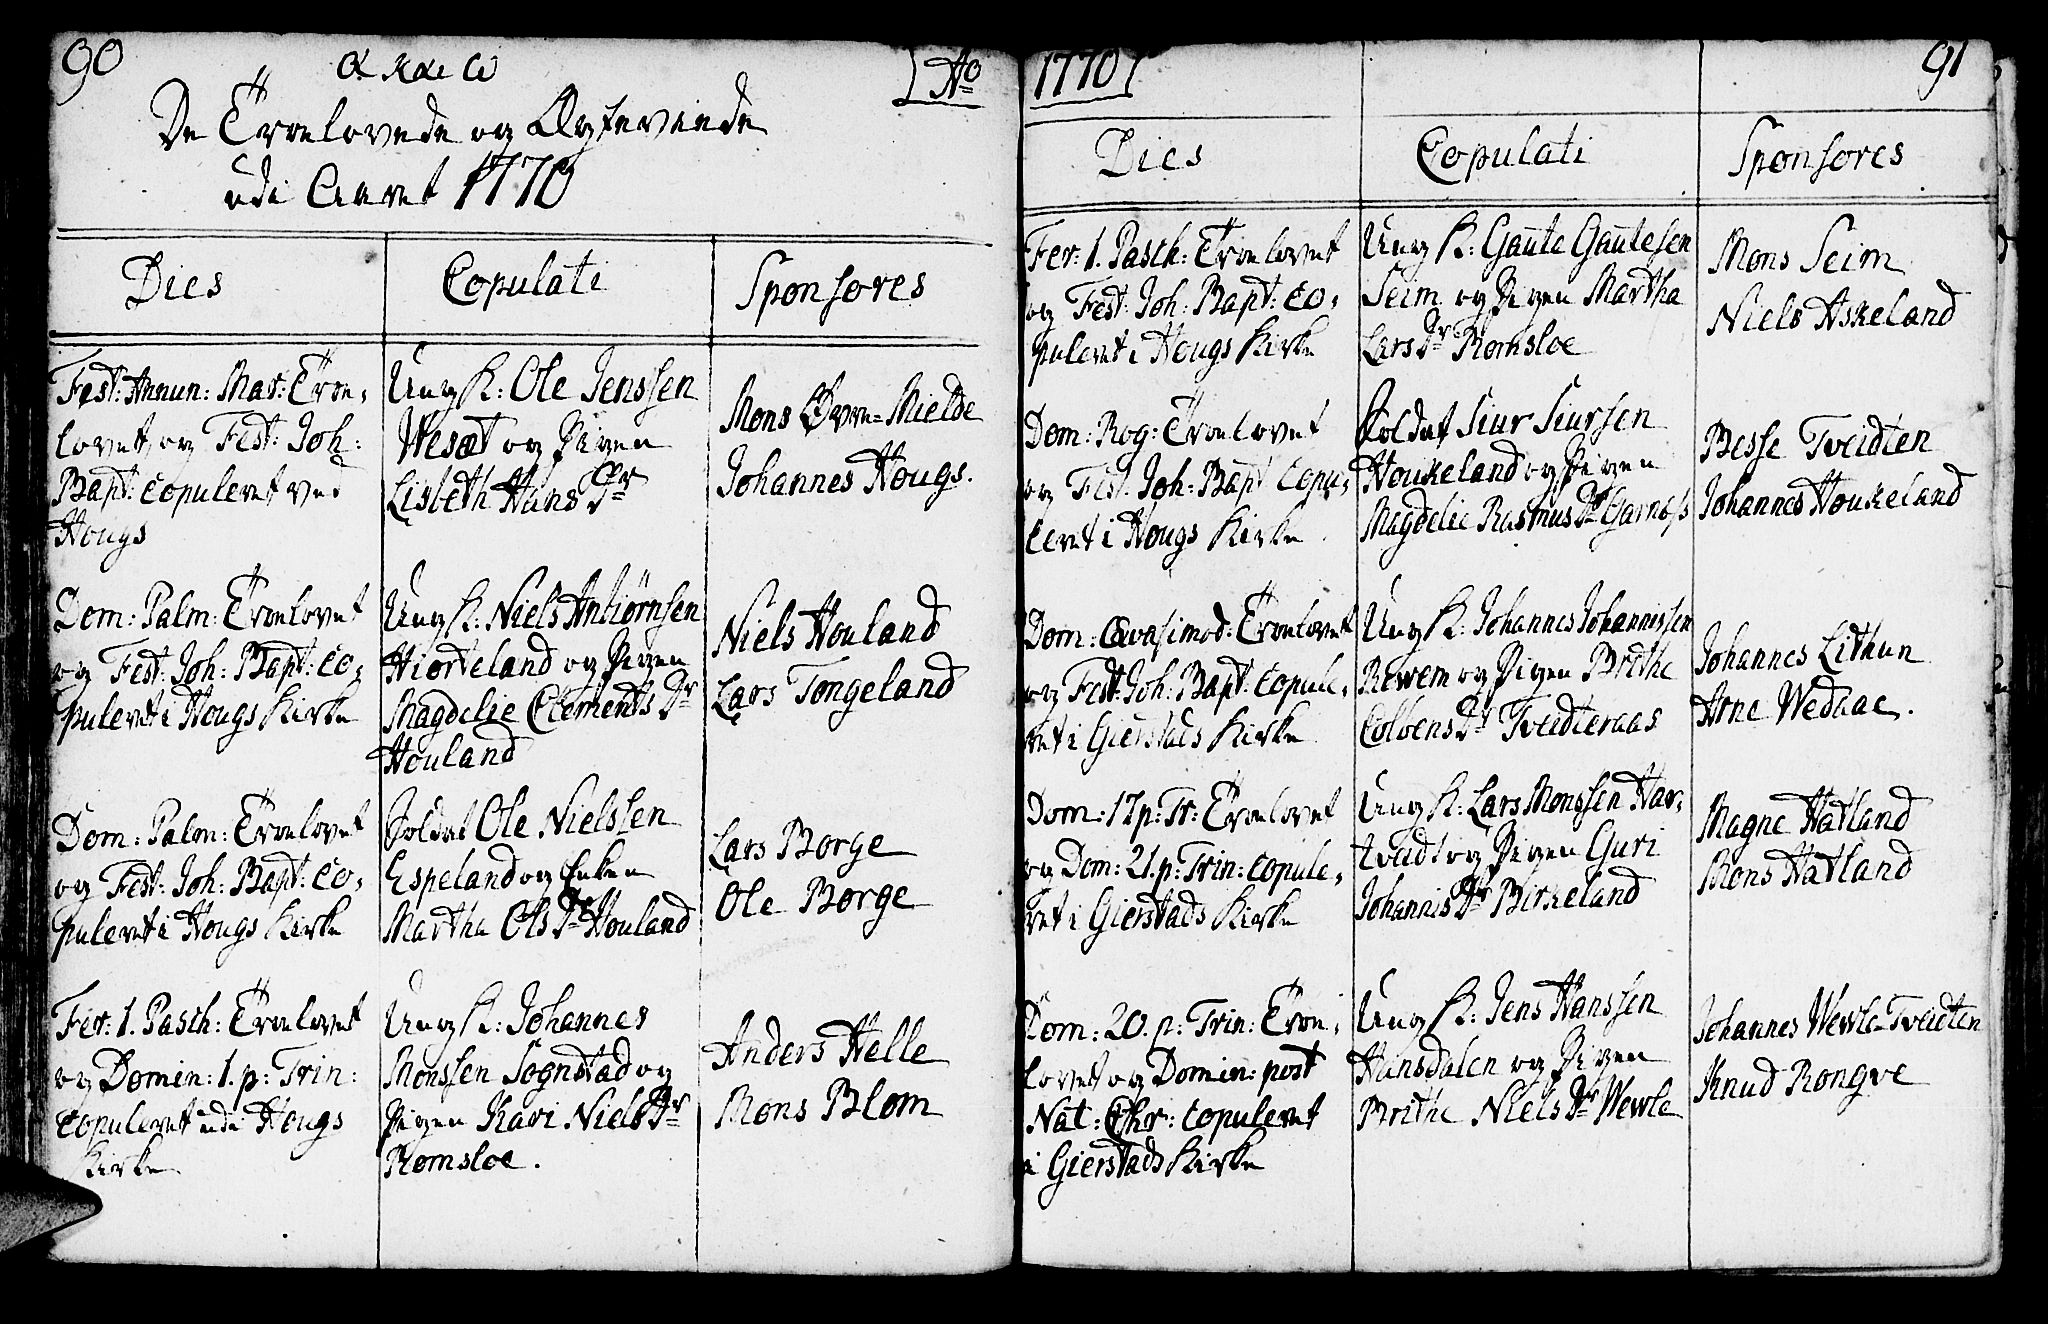 90
Ao
De Troelovede og Ægteviede
udi Aaret 1770
Dies
Copulati
Sponsores
Fest: Annun: Mar: Troe,
lovet, og Fest: Joh:
Bapt: copuleret ved
Hougs
Ung K: Ole Jenssen
Wesæt og Pigen
Lisbeth Hans Dr
Mons Øvre-Mielde
Johannes Hougs.
Dom: Palm: Troelovet
og Fest: Joh: Bapt: co,
puleret i Hougs Kirke
Ung K: Niels Anbiørnsen
Hiorteland og Pigen
Magdelie Clements Dr
Houland
Niels Houland
Lars Tongeland
Dom: Palm: Troelovet
og Fest: Joh: Bapt: co,
puleret i Hougs Kirke
Soldat Ole Nielssen
Espeland og Enken
Martha Ols Dr Houland
Lars Borge
Ole Borge
Fer: 1. Pasch: Troelovet
og Domin: 1. p: Trin:
copuleret udi Hougs
Kirke
Ung K: Johannes
Monssen Sognstad og
Pigen Kari Niels Dr
Romsloe.
Anders Helle
Mons Blom
1770
91
Dies
Copulati
Sponsores
Fer: 1. Pasch: Troelovet
og Fest: Joh: Bapt: co,
puleret i Hougs Kirke
Ung K: Gaute Gautesen
Seim og Pigen Martha
Lars Dr Romsloe
Mons Seim
Niels Askeland
Dom: Rog: Troelovet
og Fest: Joh: Bapt copu,
leret i Hougs Kirke
Soldat Siur Siursen
Houkeland og Pigen
Magdelie Rasmus Dr Garnæss
Besse Tveidten
Johannes Houkeland
Dom: Qvasimod: Troelovet
og Fest: Joh: Bapt: copule,
ret i Gierstads Kirke
Ung K: Johannes Johannissen
Rewem og Pigen Brithe
Colbens Dr Tveidteraas
Johannes Lithun
Arne Wedaae.
Dom: 17 p: Tr: Troelovet
og Dom: 21. p: Trin: copule,
ret i Gierstads Kirke
Ung K: Lars Monssen Har,
tveidt og Pigen Guri
Johannis Dr Birkeland
Magne Hatland
Mons Hatland
Dom: 20. p: Trin: Troe,
lovet og Domin: post
Nat: Chr: copuleret
i Gierstads Kirke
Ung K: Jens Hanssen
Hansdalen og Pigen
Brithe Niels Dr Wewle
Johannes Wewle-Tveidten
Knud Rongve